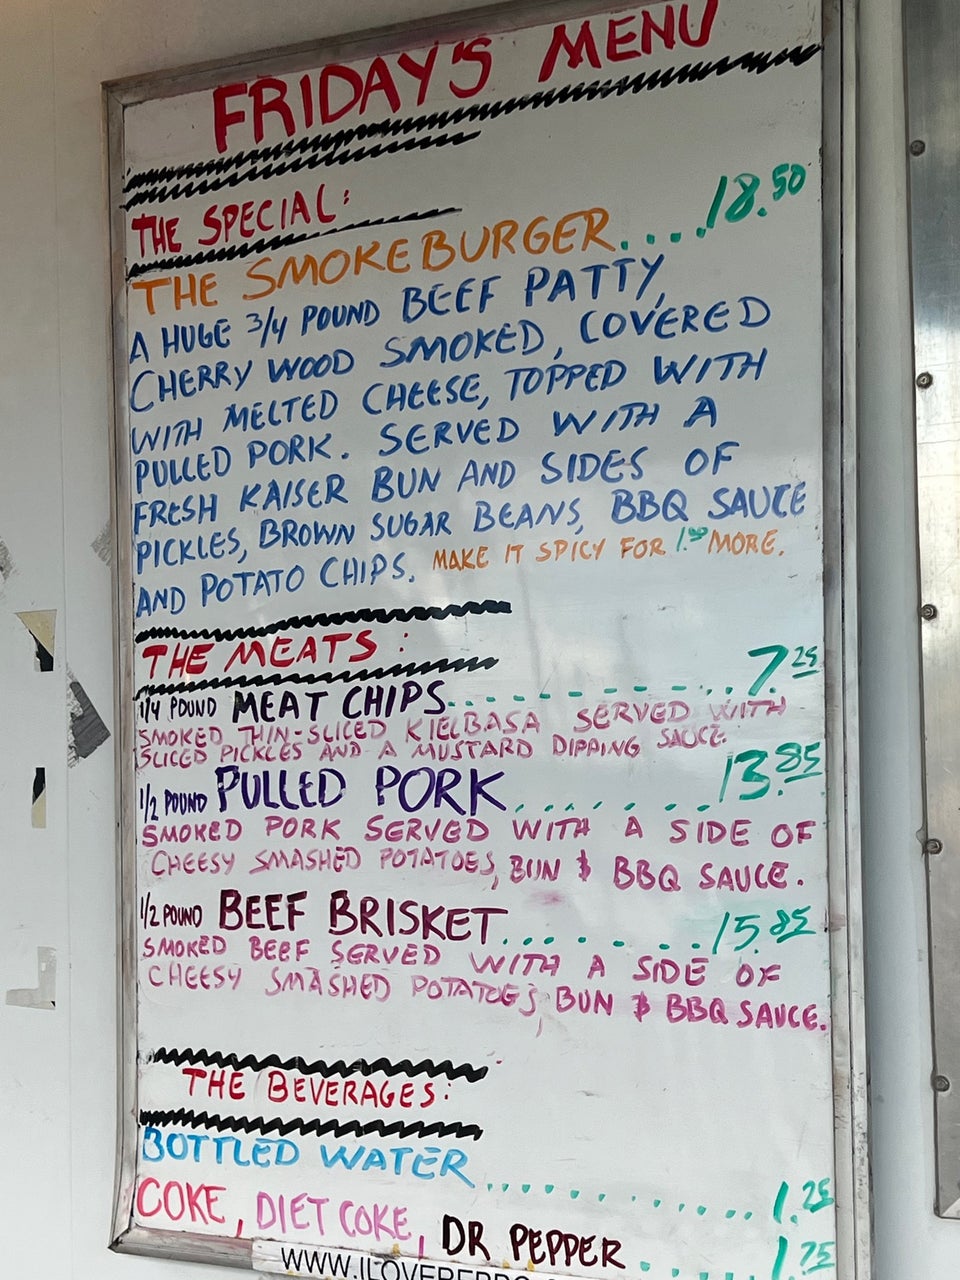 FRIDAY'S MENU
THE SPECIAL:
THE SMOKEBURGER.....18.50
A HUGE 3/4 POUND BEEF PATTY,
CHERRY WOOD SMOKED, COVERED
WITH MELTED CHEESE, TOPPED WITH
PULLED PORK. SERVED WITH A
FRESH KAISER BUN AND SIDES OF
PICKLES, BROWN SUGAR BEANS, BBQ SAUCE
AND POTATO CHIPS. MAKE IT SPICY FOR MORE.
THE MEATS:
1/4 POUND MEAT CHIPS............7.25
SMOKED THIN-SLICED KIELBASA SERVED WITH
SLICED PICKLES AND A MUSTARD DIPPING SAUCE.
1/2 POUND PULLED PORK........13.85
SMOKED PORK SERVED WITH A SIDE OF
CHEESY SMASHED POTATOES, BUN & BBQ SAUCE.
1/2 POUND BEEF BRISKET.........15.85
SMOKED BEEF SERVED WITH A SIDE OF
CHEESY SMASHED POTATOES, BUN & BBQ SAUCE.
THE BEVERAGES:
BOTTLED WATER..............1.25
COKE, DIET COKE, DR PEPPER....1.75